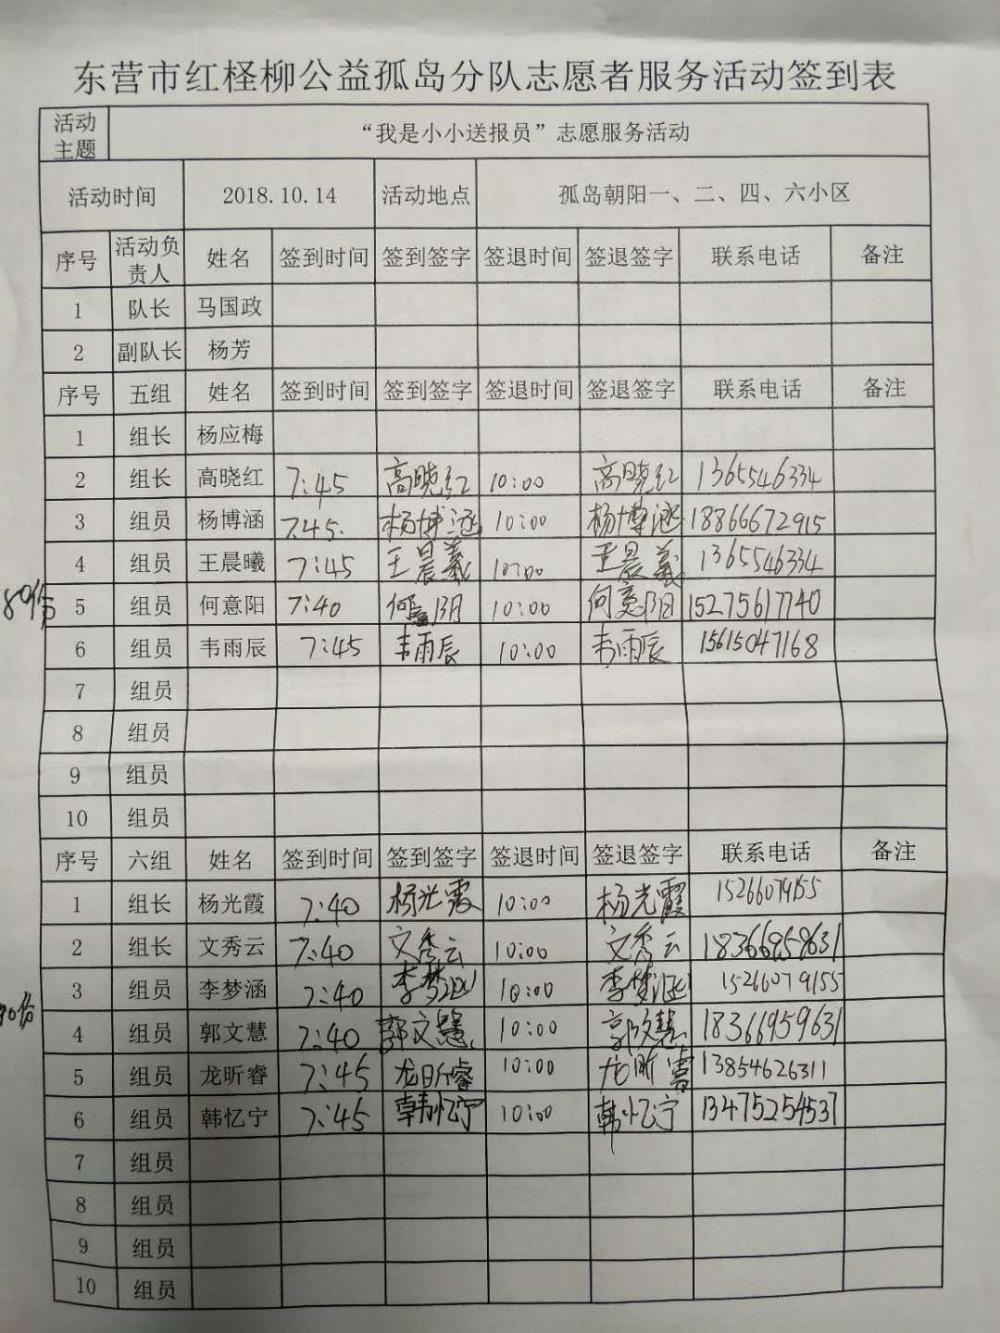 东营市红柽柳公益孤岛分队志愿者服务活动签到表
活动主题 “我是小小送报员”志愿服务活动
活动时间 2018.10.14 活动地点 孤岛朝阳一、二、四、六小区
序号 活动负责人 姓名 签到时间 签到签字 签退时间 签退签字 联系电话 备注
1 队长 马国政
2 副队长 杨芳
序号 五组 姓名 签到时间 签到签字 签退时间 签退签字 联系电话 备注
1 组长 杨应梅
2 组长 高晓红 7:45 高晓红 10:00 高晓红 1365546334
3 组员 杨博涵 7:45. 杨博涵 10:00 杨博涵 18866672915
4 组员 王晨曦 7:45 王晨羲 10:00 王晨羲 1365546334
80份
5 组员 何意阳 7:40 何意阳 10:00 何意阳 15275617740
6 组员 韦雨辰 7:45 韦雨辰 10:00 韦雨辰 15615047168
7 组员
8 组员
9 组员
10 组员
序号 六组 姓名 签到时间 签到签字 签退时间 签退签字 联系电话 备注
1 组长 杨光霞 7:40 杨光霞 10:00 杨光霞 15266079155
2 组长 文秀云 7:40 文秀云 10:00 文秀云 18366959631
3 组员 李梦涵 7:40 李梦涵 10:00 李梦涵 15266079155
90份
4 组员 郭文慧 7:40 郭文慧 10:00 郭文慧 18366959631
5 组员 龙昕睿 7:45 龙昕睿 10:00 龙昕睿 13854626311
6 组员 韩忆宁 7:45 韩忆宁 10:00 韩忆宁 13475254537
7 组员
8 组员
9 组员
10 组员